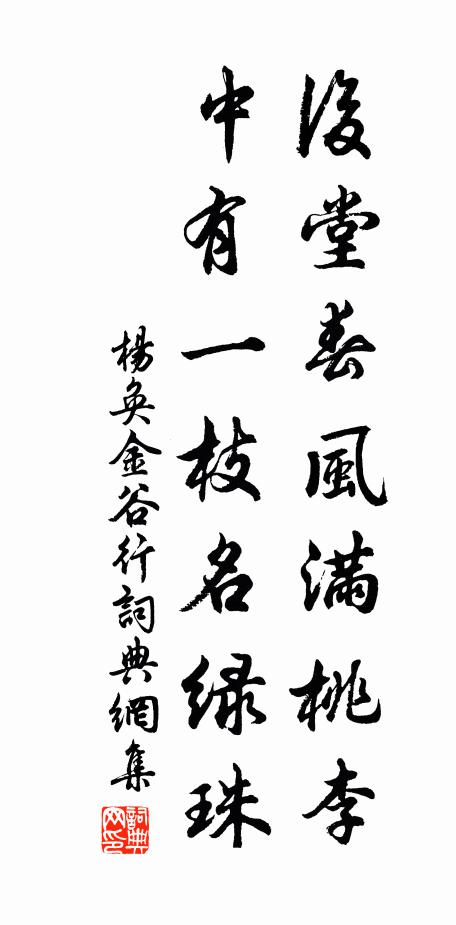 後堂春風滿桃李
中有一枝名緑珠
楊奐金谷行詞典網集
詞典网印